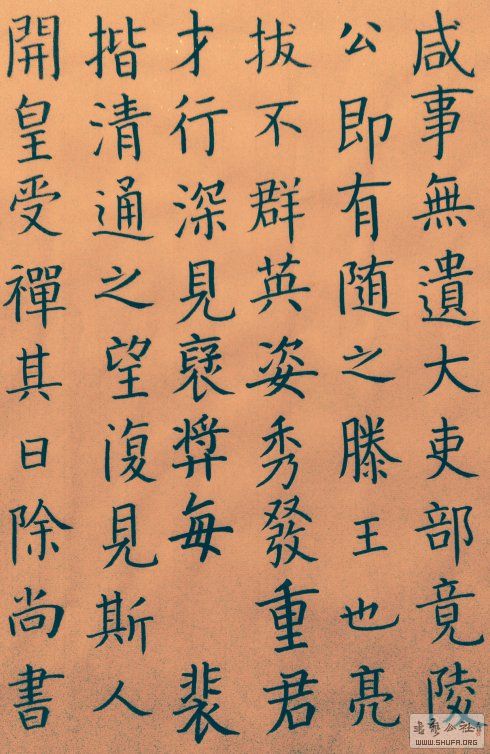 咸事無遺大吏部竟陵
公即有随之滕王也亮
拔不群英姿秀發重君
才行深見襃弉每裴
揩清通之望復見斯人
開皇受禪其日除尚書
書法公社
WWW.SHUFA.ORG